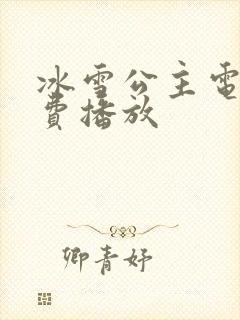 冰雪公主電
費播放
卿青妤